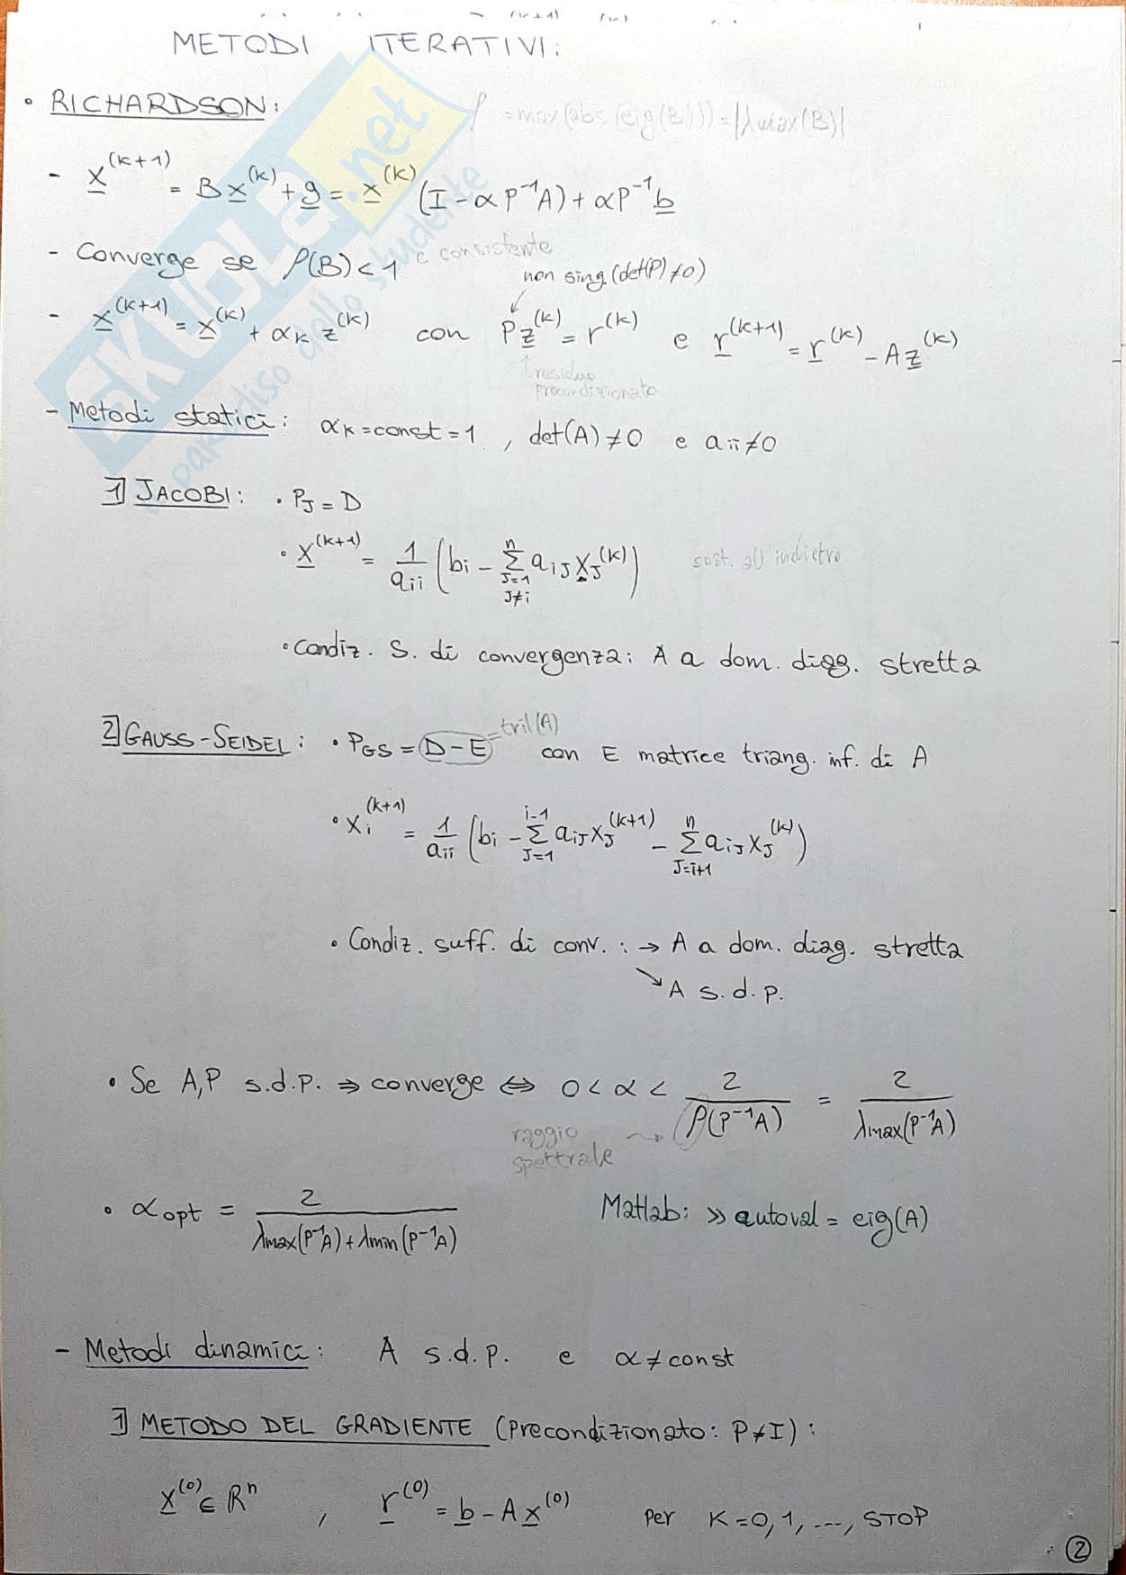 METODI ITERATIVI:
• RICHARDSON: ρ = max(abs(eig(B))) = |λmax(B)|
- x^(k+1) = Bx^(k) + g = x^(k) (I - αP^-1A) + αP^-1b
- Converge se ρ(B) < 1 e consistente
non sing (det(P)≠0)
- x^(k+1) = x^(k) + α_k z^(k) con Pz^(k) = r^(k) e r^(k+1) = r^(k) - Az^(k)
residuo
precondizionato
- Metodi statici: α_k = const = 1, det(A)≠0 e a_ii≠0
1] JACOBI: • P_J = D
• x^(k+1) = 1/a_ii (b_i - Σ_{J=1, J≠i}^n a_iJ x_J^(k)) sost. all'indietro
• Condiz. S. di convergenza: A a dom. diag. stretta
2] GAUSS-SEIDEL: • P_GS = D-E = tril(A) con E matrice triang. inf. di A
• x_i^(k+1) = 1/a_ii (b_i - Σ_{J=1}^{i-1} a_iJ x_J^(k+1) - Σ_{J=i+1}^n a_iJ x_J^(k))
• Condiz. suff. di conv. : → A a dom. diag. stretta
↘ A s.d.p.
• Se A,P s.d.p. ⇒ converge ⇔ 0 < α < 2/ρ(P^-1A) = 2/λmax(P^-1A)
raggio
spettrale
• α_opt = 2/(λmax(P^-1A) + λmin(P^-1A)) Matlab: >> autoval = eig(A)
- Metodi dinamici: A s.d.p. e α≠const
1] METODO DEL GRADIENTE (Precondizionato: P≠I):
x^(0) ∈ R^n , r^(0) = b - Ax^(0) per K=0,1,...,STOP
2
SKUOLA.net
paradiso dello studente